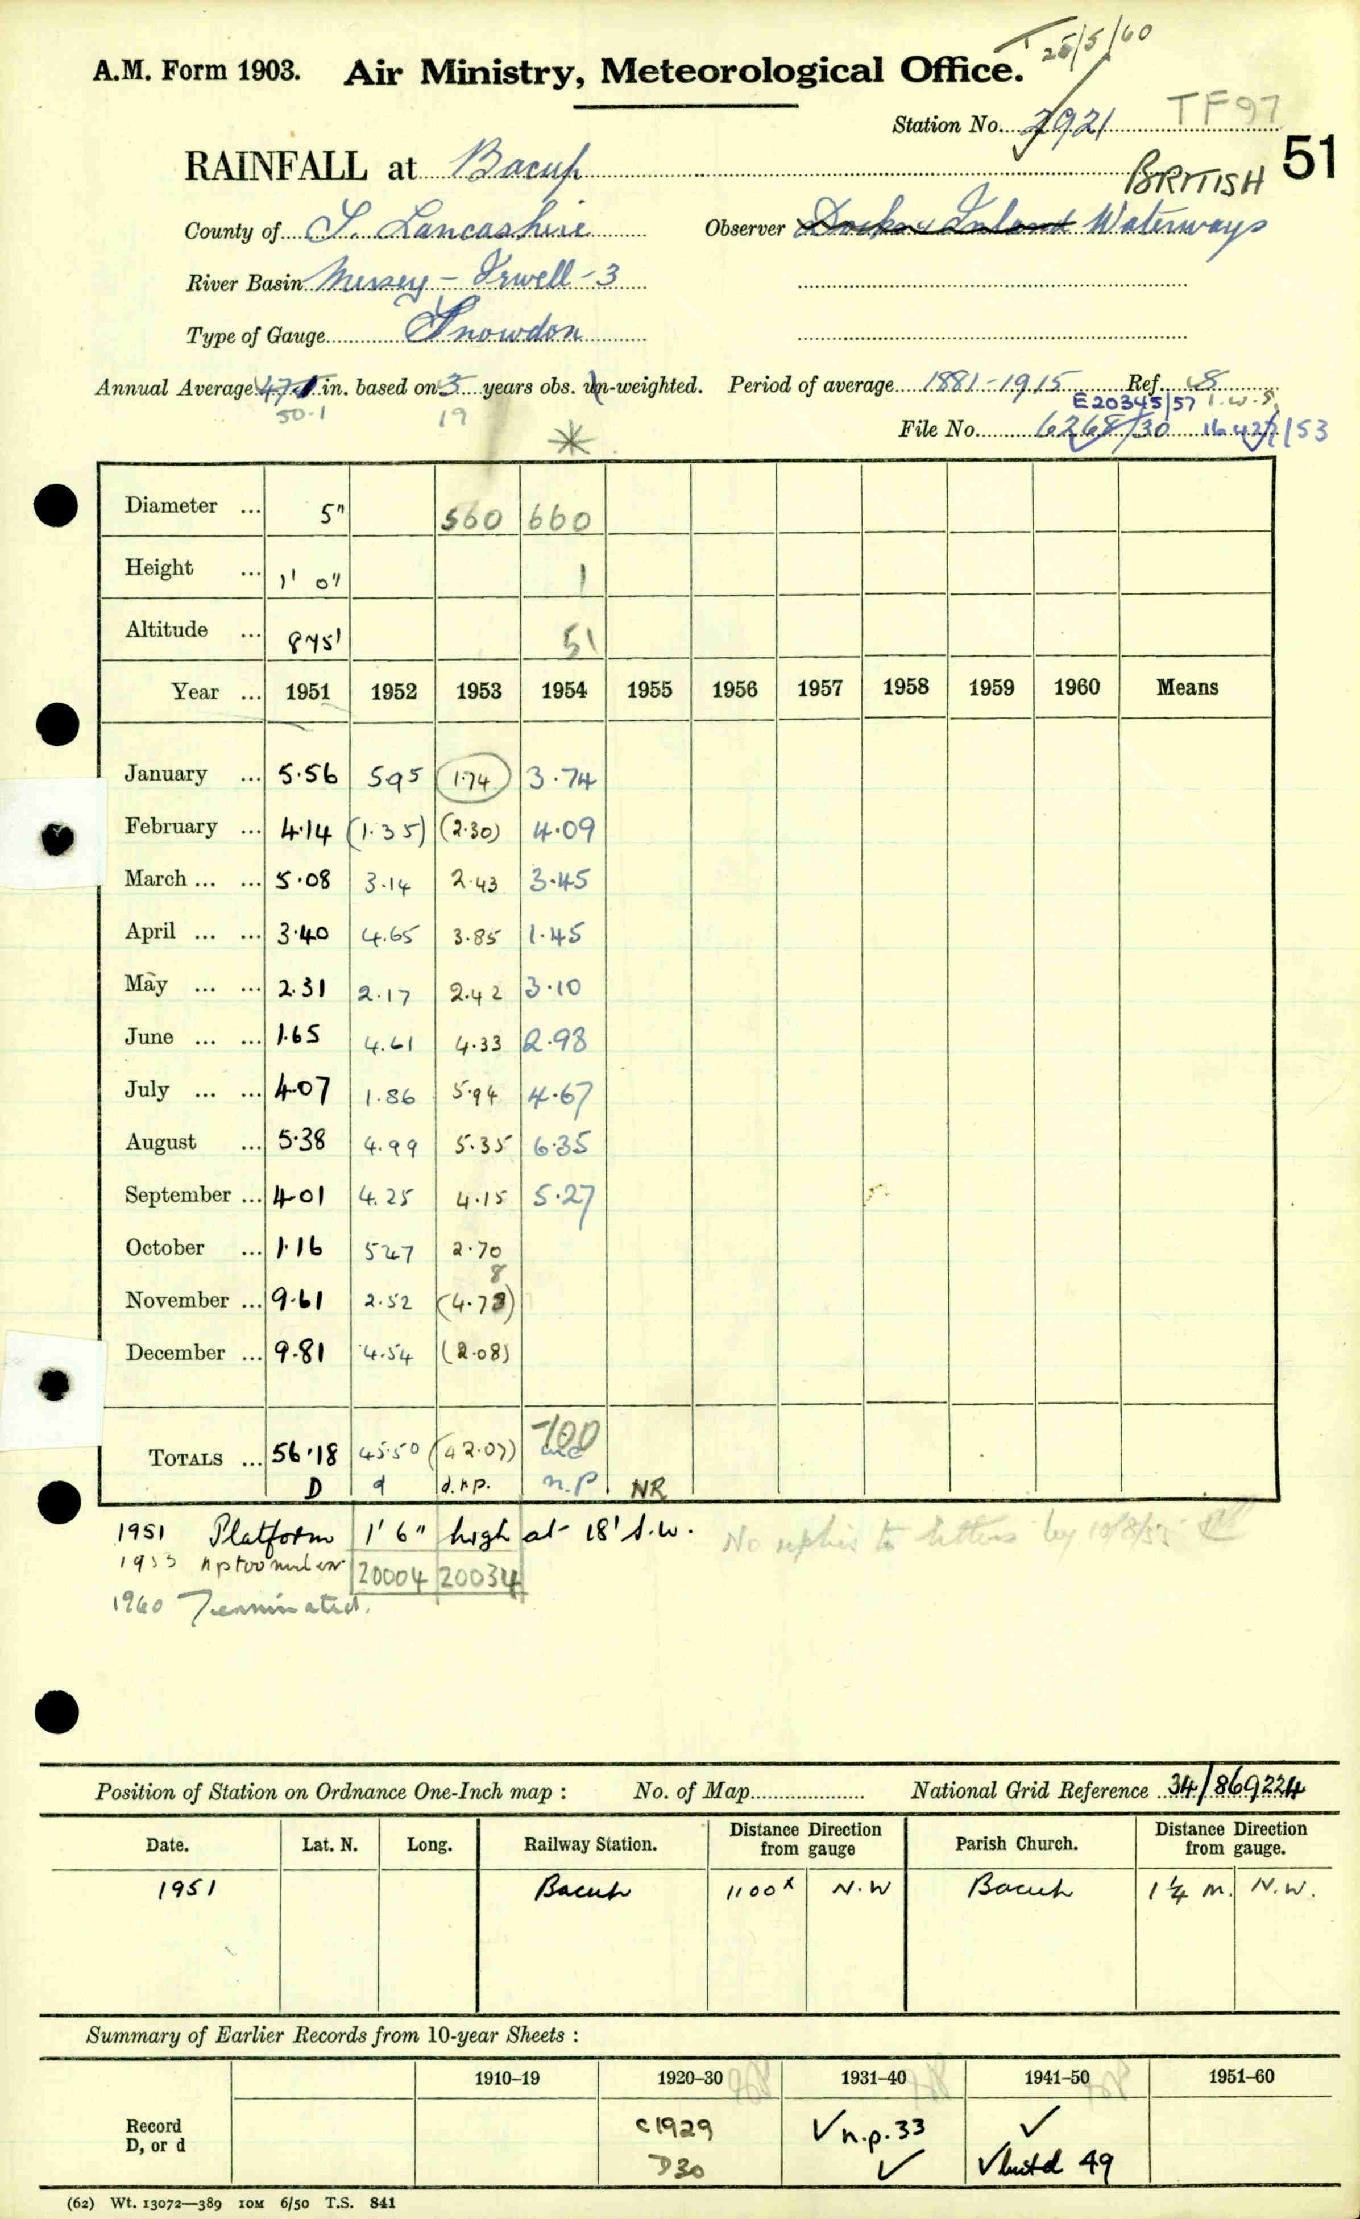 T 25/5/60
A.M. Form 1903. Air Ministry, Meteorological Office.
Station No. 7921 TF97
51
RAINFALL at Bacup
BRITISH
County of S. Lancashire Observer Docks & Inland Waterways
River Basin Mersey - Irwell - 3
Type of Gauge Snowdon
Annual Average 47.1 in. based on 3 years obs. un-weighted. Period of average 1881-1915 Ref. S
50.1 19 E20345/57 I.W.S.
File No. 6268/30 1642/1/53
Diameter ... 5" 560 660
Height ... 1' 0" 1
Altitude ... 875' 51
Year ... 1951 1952 1953 1954 1955 1956 1957 1958 1959 1960 Means
January ... 5.56 5.95 1.74 3.74
February ... 4.14 (1.35) (2.30) 4.09
March ... ... 5.08 3.14 2.43 3.45
April ... ... 3.40 4.65 3.85 1.45
May ... ... 2.31 2.17 2.42 3.10
June ... ... 1.65 4.61 4.33 2.98
July ... ... 4.07 1.86 5.94 4.67
August ... 5.38 4.99 5.35 6.35
September ... 4.01 4.25 4.15 5.27
October ... 1.16 5.47 2.70
8
November ... 9.61 2.52 (4.73)
December ... 9.81 4.54 (2.08)
-100
TOTALS ... 56.18 45.50 (42.07) inc
D d d.n.p. n.p NR
1951 Platform 1' 6" high at 18' S.W. No replies to letters by 10/8/55
1953 n p too
20004 20034
1960 Terminated.
Position of Station on Ordnance One-Inch map : No. of Map National Grid Reference 34/869224
Date. Lat. N. Long. Railway Station. Distance from Direction gauge Parish Church. Distance from Direction gauge.
1951 Bacup 1100x N.W Bacup 1¼ m. N.W.
Summary of Earlier Records from 10-year Sheets :
1910-19 1920-30 1931-40 1941-50 1951-60
Record c1929 ✓ n.p. 33 ✓
D, or d D30 ✓ ✓ but d 49
(62) Wt. 13072—389 10M 6/50 T.S. 841